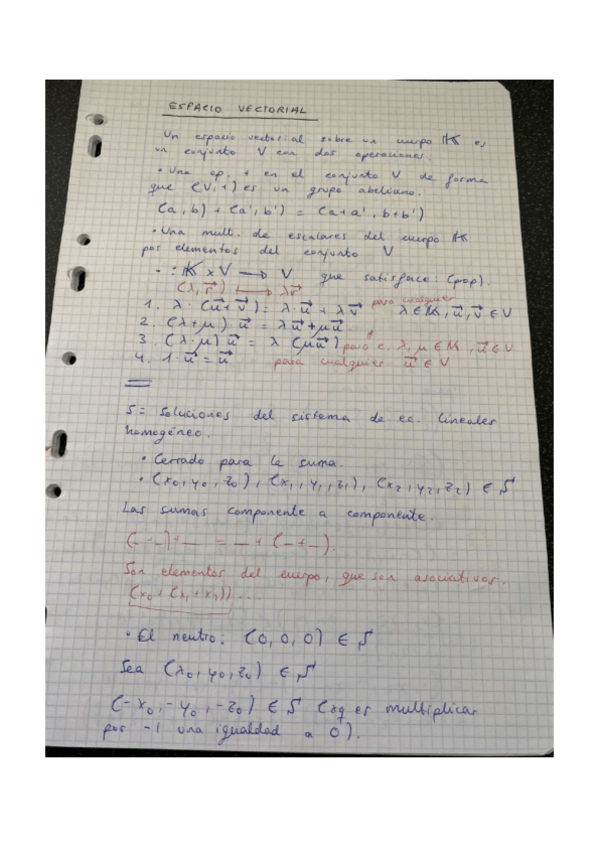 ESPACIO VECTORIAL
Un espacio vectorial sobre un cuerpo 𝕂 es
un conjunto V con dos operaciones.
• Una op. + en el conjunto V de forma
que (V,+) es un grupo abeliano.
(a, b) + (a', b') = (a+a', b+b')
• Una mult. de escalares del cuerpo 𝕂
por elementos del conjunto V
- · : 𝕂 x V → V que satisface: (prop).
(λ, v⃗) ↦ λv⃗
1. λ · (u⃗+v⃗) = λ·u⃗ + λv⃗ para cualquier λ ∈ 𝕂, u⃗, v⃗ ∈ V
2. (λ+μ) u⃗ = λu⃗+μu⃗
3. (λ·μ) u⃗ = λ (μu⃗) para c. λ, μ ∈ 𝕂, u⃗ ∈ V
4. 1·u⃗ = u⃗ para cualquier u⃗ ∈ V
S = Soluciones del sistema de ec. lineales
homogéneo.
• Cerrado para la suma.
• (x₀, y₀, z₀), (x₁, y₁, z₁), (x₂, y₂, z₂) ∈ S
Las sumas componente a componente.
(_ + _) + _ = _ + (_ + _).
Son elementos del cuerpo, que son asociativos.
(x₀ + (x₁ + x₂)) ...
• El neutro: (0, 0, 0) ∈ S
Sea (x₀, y₀, z₀) ∈ S
(-x₀, -y₀, -z₀) ∈ S (xq es multiplicar
por -1 una igualdad a 0).